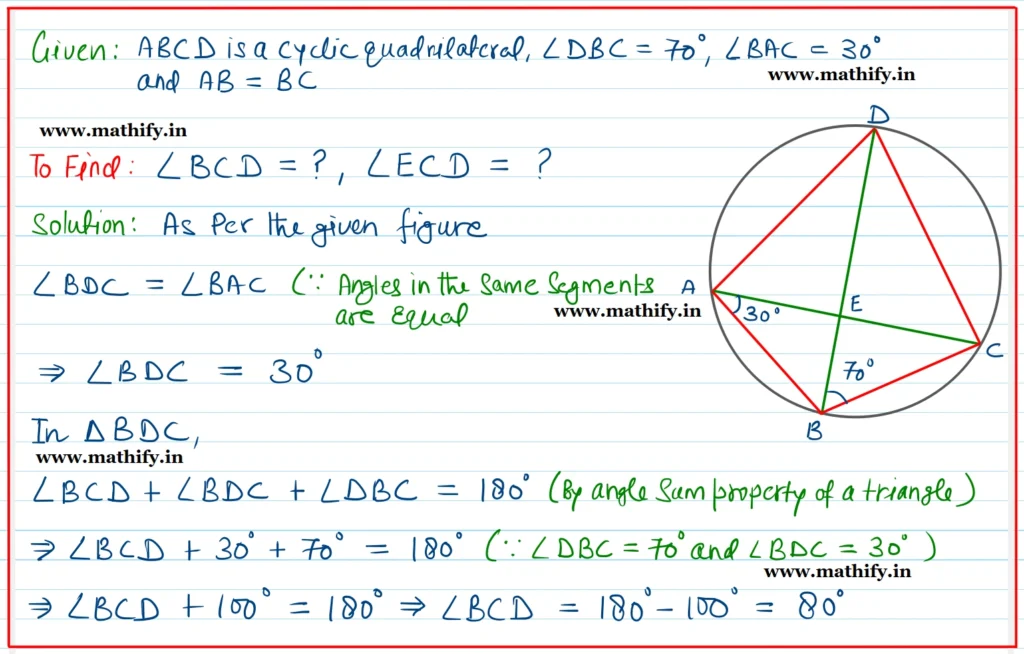 Given: ABCD is a cyclic quadrilateral, ∠DBC = 70°, ∠BAC = 30°
and AB = BC
www.mathify.in
www.mathify.in
To Find: ∠BCD = ?, ∠ECD = ?
Solution: As Per the given figure
∠BDC = ∠BAC (∵ Angles in the Same Segments
are Equal
www.mathify.in
⇒ ∠BDC = 30°
In ΔBDC,
www.mathify.in
∠BCD + ∠BDC + ∠DBC = 180° (By angle Sum property of a triangle)
⇒ ∠BCD + 30° + 70° = 180° (∵ ∠DBC = 70° and ∠BDC = 30°)
www.mathify.in
⇒ ∠BCD + 100° = 180° ⇒ ∠BCD = 180° - 100° = 80°
D
A
30°
E
C
70°
B